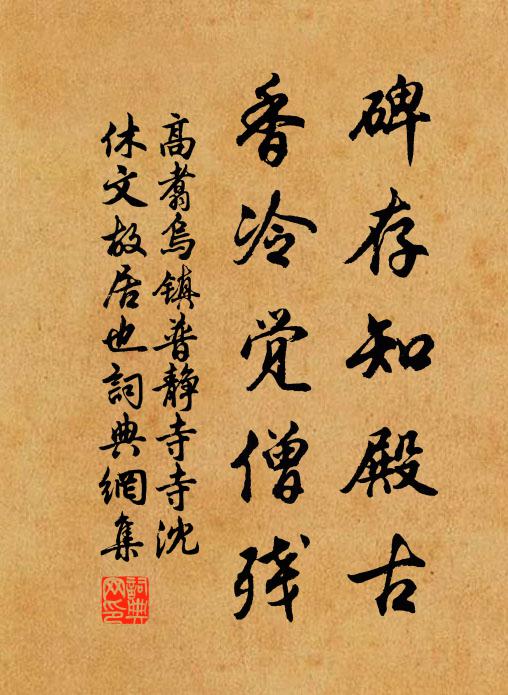 碑存知殿古
香冷觉僧残
高翥乌镇普静寺寺沈
休文故居也词典網集
詞典网印